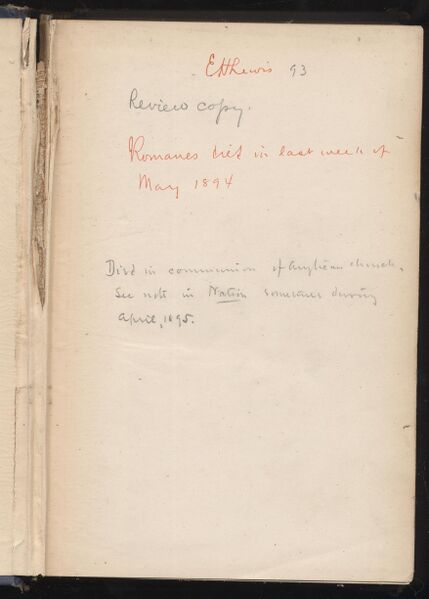 EHLewis 93
Review copy.
Romanes died in last week of
May 1894
Died in communion of Anglican church.
See note in Nation sometime during
April, 1895.